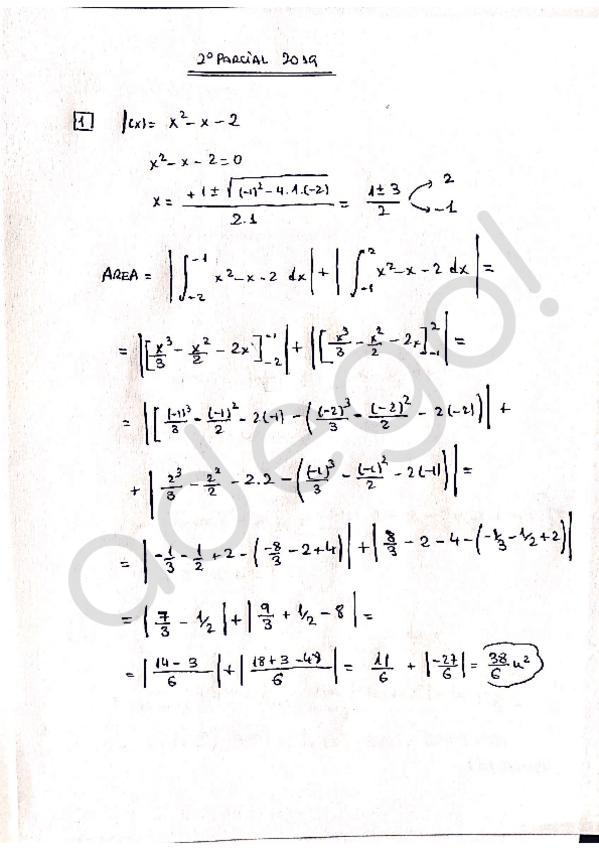 2º PARCIAL 2019
1 f(x) = x² - x - 2
x² - x - 2 = 0
x = (+1 ± √((-1)² - 4.1.(-2))) / 2.1 = (1 ± 3)/2 → 2, → -1
AREA = |∫_{-2}^{-1} x² - x - 2 dx| + |∫_{-1}^{2} x² - x - 2 dx| =
= |[x³/3 - x²/2 - 2x]_{-2}^{-1}| + |[x³/3 - x²/2 - 2x]_{-1}^{2}| =
= |[(-1)³/3 - (-1)²/2 - 2(-1) - ((-2)³/3 - (-2)²/2 - 2(-2))| +
+ |2³/3 - 2²/2 - 2.2 - ((-1)³/3 - (-1)²/2 - 2(-1))| =
= |-1/3 - 1/2 + 2 - (-8/3 - 2 + 4)| + |8/3 - 2 - 4 - (-1/3 - 1/2 + 2)|
= |7/3 - 1/2| + |9/3 + 1/2 - 8| =
= |(14 - 3)/6| + |(18 + 3 - 48)/6| = 11/6 + |-27/6| = 38/6 u²
adego!